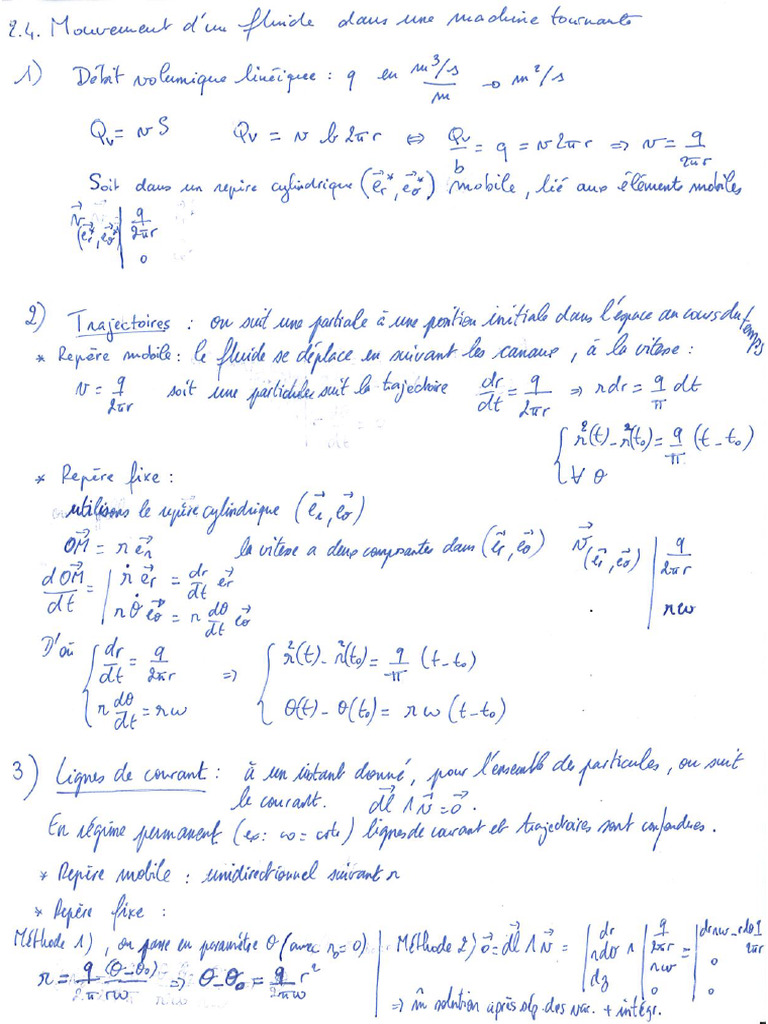 2.4. Mouvement d'un fluide dans une machine tournante
1) Débit volumique linéique : q en m³/s / m → m²/s
Qv = v S    Qv = v b 2πr ⇔ Qv/b = q = v 2πr ⇒ v = q/2πr
Soit dans un repère cylindrique (er*, eθ*) mobile, lié aux éléments mobiles
v (er*, eθ*) | q/2πr
0
2) Trajectoires : on suit une particule à une position initiale dans l'espace au cours du temps
* Repère mobile : le fluide se déplace en suivant les canaux, à la vitesse :
v = q/2πr soit une particules suit la trajectoire dr/dt = q/2πr ⇒ r dr = q/π dt
{ r²(t) - r²(t₀) = q/π (t - t₀)
∀ θ
* Repère fixe :
utilisons le repère cylindrique (er, eθ)
OM = r er    la vitesse a deux composantes dans (er, eθ)    v (er, eθ) | q/2πr
rω
dOM/dt = | ṙ er = dr/dt er
r θ̇ eθ = r dθ/dt eθ
D'où { dr/dt = q/2πr ⇒ { r²(t) - r²(t₀) = q/π (t - t₀)
r dθ/dt = rω    θ(t) - θ(t₀) = rω (t - t₀)
3) Lignes de courant : à un instant donné, pour l'ensemble des particules, on suit
le courant. dl ∧ v = 0.
En régime permanent (ex : ω = cste) lignes de courant et trajectoires sont confondues.
* Repère mobile : unidirectionnel suivant r
* Repère fixe :
Méthode 1), on passe en paramètre θ (avec r₀ = 0)
r = q/2π (θ - θ₀)/rω ⇒ θ - θ₀ = q/2πω r²
Méthode 2) 0 = dl ∧ v = | dr rdθ dz ∧ | q/2πr rω 0 = | dr rω - r dθ q/2πr 0 0
⇒ m̂ solution après sép. des var. + intégr.